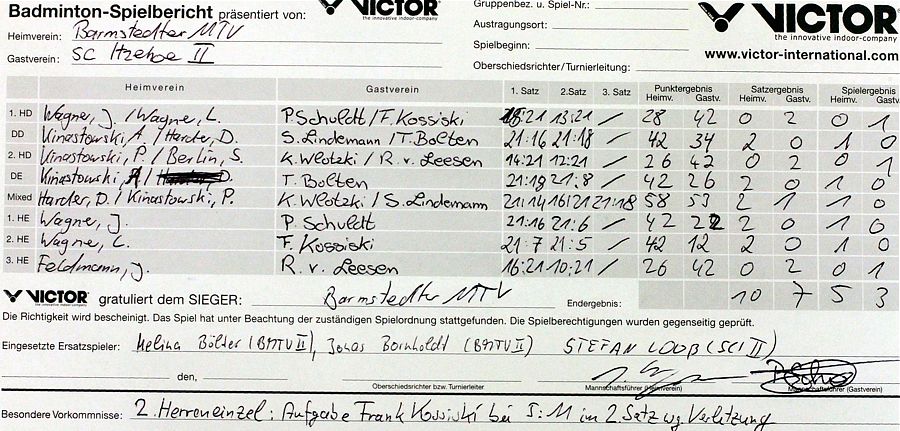 Badminton-Spielbericht präsentiert von: VICTOR the innovative indoor-company Gruppenbez. u. Spiel-Nr.: VICTOR
Heimverein: Barmstedter MTV Austragungsort: the innovative indoor-company
Gastverein: SC Itzehoe II Spielbeginn: www.victor-international.com
Oberschiedsrichter/Turnierleitung:
Heimverein Gastverein 1. Satz 2.Satz 3. Satz Punktergebnis Satzergebnis Spielergebnis
Heimv. Gastv. Heimv. Gastv. Heimv. Gastv.
1. HD Wagner, J. / Wagner, L. P. Schuldt / F. Kossiski 15:21 13:21 / 28 42 0 2 0 1
DD Kinastowski, A. / Harder, D. S. Lindemann / T. Bolten 21:16 21:18 / 42 34 2 0 1 0
2. HD Kinastowski, P. / Berlin, S. K. Wlotzki / R. v. Leesen 14:21 12:21 / 26 42 0 2 0 1
DE Kinastowski, A T. Bolten 21:18 21:8 / 42 26 2 0 1 0
Mixed Harder, D. / Kinastowski, P. K. Wlotzki / S. Lindemann 21:14 16:21 21:18 58 53 2 1 1 0
1. HE Wagner, J. P. Schuldt 21:16 21:6 / 42 22 2 0 1 0
2. HE Wagner, L. F. Kossiski 21:7 21:5 / 42 12 2 0 1 0
3. HE Feldmann, J. R. v. Leesen 16:21 10:21 / 26 42 0 2 0 1
VICTOR the innovative indoor-company gratuliert dem SIEGER: Barmstedter MTV Endergebnis: 10 7 5 3
Die Richtigkeit wird bescheinigt. Das Spiel hat unter Beachtung der zuständigen Spielordnung stattgefunden. Die Spielberechtigungen wurden gegenseitig geprüft.
Eingesetzte Ersatzspieler: Melina Bölter (BMTV II), Jonas Bornholdt (BMTV II) STEFAN LOOß (SCI II)
den,
Oberschiedsrichter bzw. Turnierleiter Mannschaftsführer (Heimverein) Mannschaftsführer (Gastverein)
Besondere Vorkommnisse: 2. Herreneinzel: Aufgabe Frank Kossiski bei 5:11 im 2. Satz wg. Verletzung